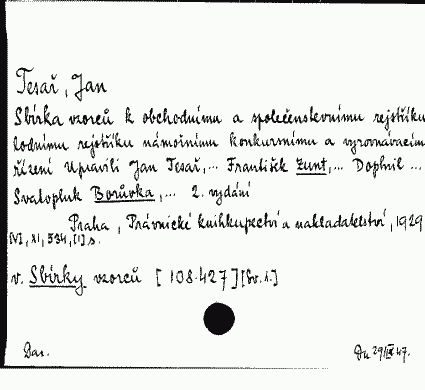 Tesař, Jan
Sbírka vzorců k obchodnímu a společenstevnímu rejstříku
lodnímu rejstříku námořnímu konkursnímu a vyrovnávacímu
řízení Upravili Jan Tesař,... František Zunt,... Doplnil ...
Svatopluk Borůvka,... 2. vydání
Praha, Právnické knihkupectví a nakladatelství, 1929
[VI, XI, 534, [1] s.
v. Sbírky vzorců [108.427] [Sv. 1.]
Dar. Du 29/IX 47.